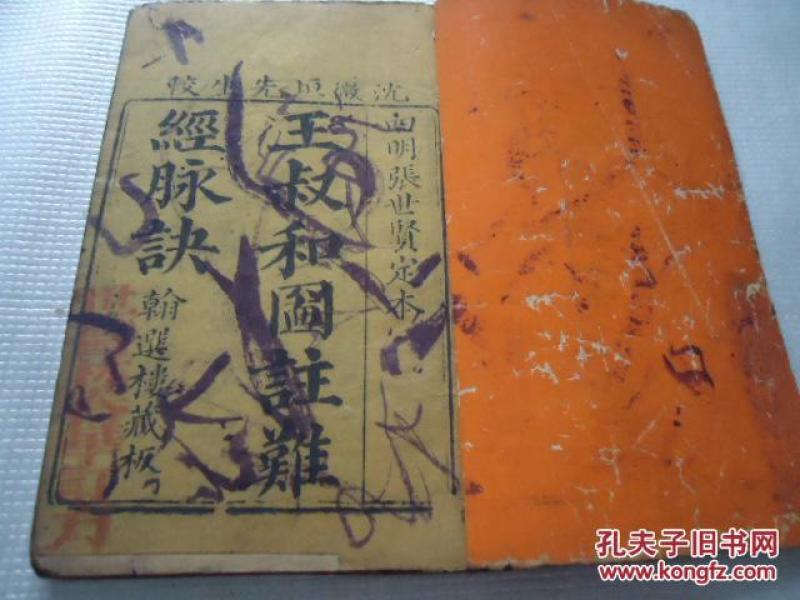 沈嶶垣先生校
四明張世賢定本
王叔和圖註難
經脉訣
翰選樓藏板
孔夫子旧书网
www.kongfz.com